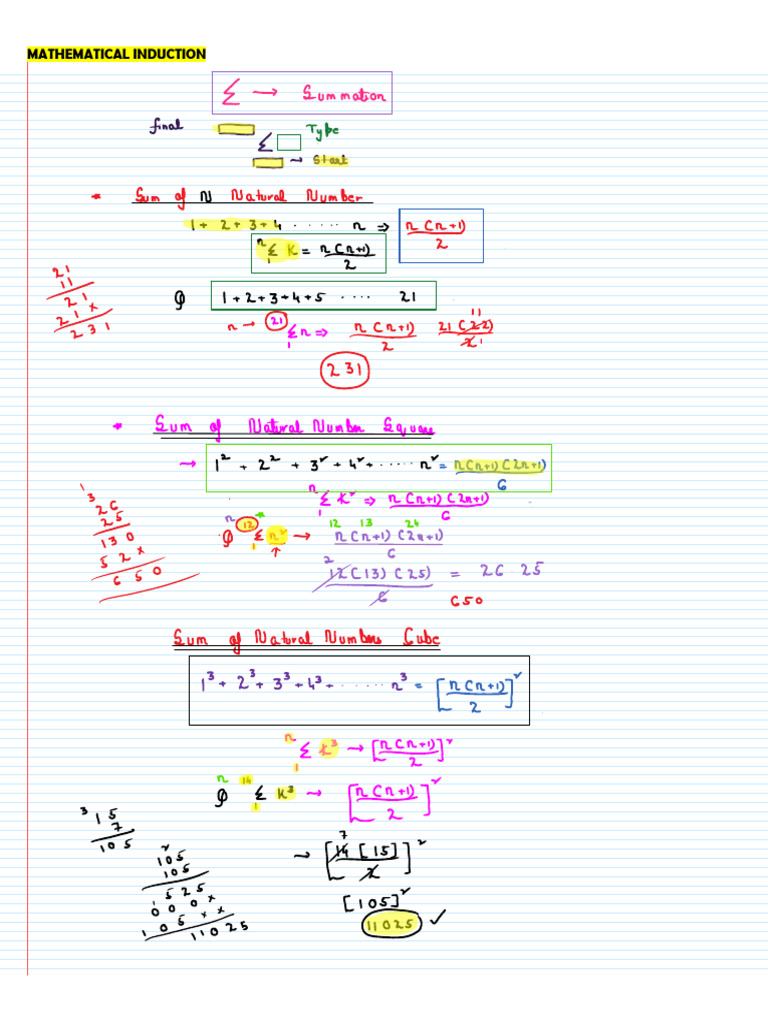 MATHEMATICAL INDUCTION
Σ → Summation
final Type
Σ
→ Start
* Sum of N Natural Number
1 + 2 + 3 + 4 ...... n ⇒ n(n+1)/2
n Σ 1 K = n(n+1)/2
21
11
21
21x
231
Q 1+2+3+4+5 .... 21
n → 21 Σ 1 n ⇒ n(n+1)/2 21(22)/2 11 1
231
* Sum of Natural Number Square
→ 1² + 2² + 3² + 4² + ..... n² = n(n+1)(2n+1)/6
n Σ 1 K² ⇒ n(n+1)(2n+1)/6
1 3
26
25
130
52x
650
n * 12 13 24
Q 12 Σ 1 n² → n(n+1)(2n+1)/6
↑
2 12(13)(25)/6 = 26 25
650
Sum of Natural Numbers Cube
1³ + 2³ + 3³ + 4³ + ...... n³ = [n(n+1)/2]²
n Σ 1 K³ → [n(n+1)/2]²
n
Q 14 Σ 1 K³ → [n(n+1)/2]²
3
15
7
105
→ [14[15]/2]² 7
2
105
105
1525
000x
105xx
11025
[105]²
11025 ✓